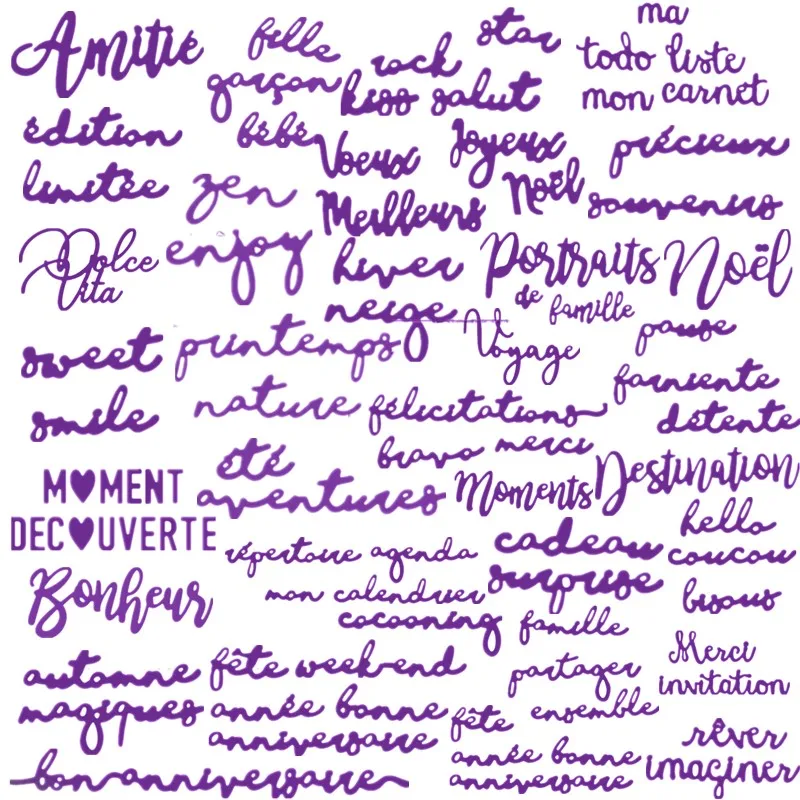 Amitié
fille
garçon
rock
star
kiss salut
ma
todo liste
mon carnet
édition
limitée
bébé
zen
Voeux
Meilleurs
Joyeux
Noël
précieux
souvenirs
Dolce
Vita
enjoy
hiver
neige
Portraits
de famille
Noël
Voyage
pause
farniente
détente
sweet
smile
printemps
nature
félicitations
bravo merci
été
aventures
Moments
Destination
M♥MENT
DEC♥UVERTE
Bonheur
répertoire agenda
mon calendrier
cocooning
cadeau
surprise
hello
coucou
bisous
famille
partager
ensemble
Merci
invitation
automne
magiques
fête week-end
année bonne
anniversaire
fête
année bonne
anniversaire
rêver
imaginer
bon anniversaire